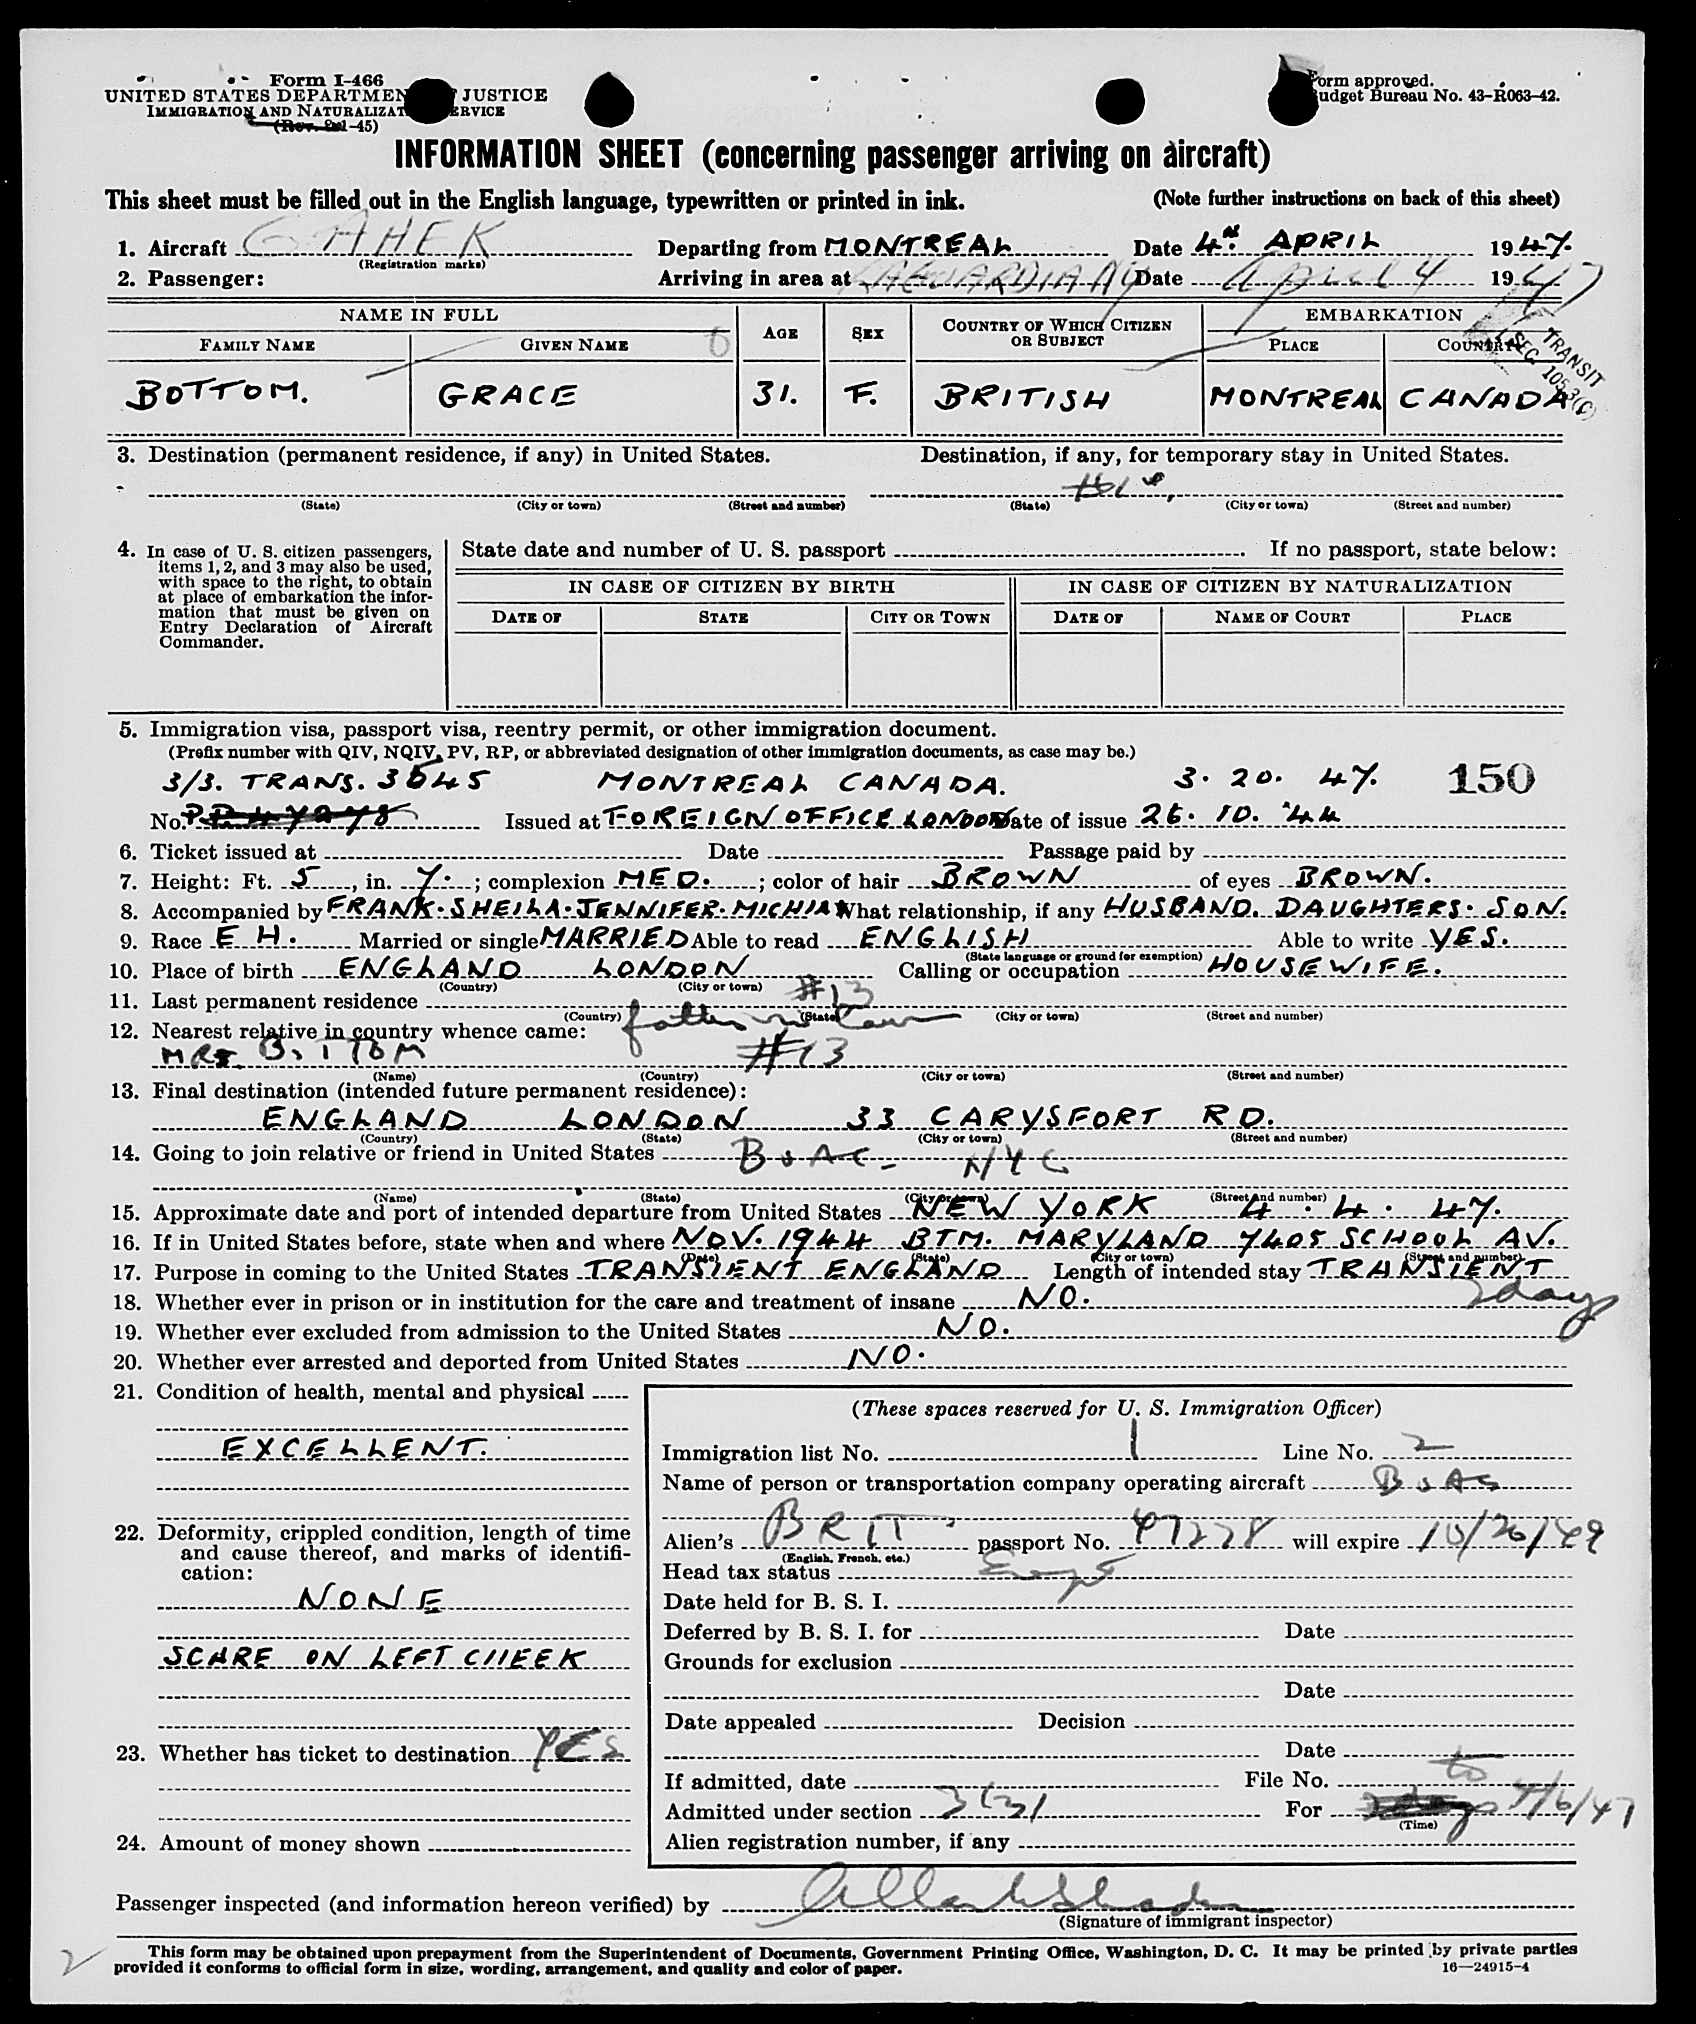 Form I-466
UNITED STATES DEPARTMEN JUSTICE
IMMIGRATION AND NATURALIZAT ERVICE
(Rev. 8-1-45)
Form approved.
Budget Bureau No. 43-R063-42.
INFORMATION SHEET (concerning passenger arriving on aircraft)
This sheet must be filled out in the English language, typewritten or printed in ink. (Note further instructions on back of this sheet)
1. Aircraft G-AHEK Departing from MONTREAL Date 4th. APRIL 1947.
(Registration marks)
2. Passenger: Arriving in area at LAGUARDIA NY Date April 4 1947
NAME IN FULL AGE SEX COUNTRY OF WHICH CITIZEN OR SUBJECT EMBARKATION
FAMILY NAME GIVEN NAME PLACE COUNTRY
TRANSIT
SEC. 105.3(C)
BOTTOM. GRACE 31. F. BRITISH MONTREAL CANADA
3. Destination (permanent residence, if any) in United States. Destination, if any, for temporary stay in United States.
(State) (City or town) (Street and number) (State) (City or town) (Street and number)
4. In case of U. S. citizen passengers, items 1, 2, and 3 may also be used, with space to the right, to obtain at place of embarkation the information that must be given on Entry Declaration of Aircraft Commander.
State date and number of U. S. passport . If no passport, state below:
IN CASE OF CITIZEN BY BIRTH IN CASE OF CITIZEN BY NATURALIZATION
DATE OF STATE CITY OR TOWN DATE OF NAME OF COURT PLACE
5. Immigration visa, passport visa, reentry permit, or other immigration document.
(Prefix number with QIV, NQIV, PV, RP, or abbreviated designation of other immigration documents, as case may be.)
3/3. TRANS. 3645 MONTREAL CANADA. 3. 20. 47. 150
No. Issued at FOREIGN OFFICE LONDON Date of issue 26. 10. '44
6. Ticket issued at Date Passage paid by
7. Height: Ft. 5, in. 7.; complexion MED.; color of hair BROWN of eyes BROWN.
8. Accompanied by FRANK. SHEILA. JENNIFER. MICHIA What relationship, if any HUSBAND. DAUGHTERS. SON.
9. Race E H. Married or single MARRIED Able to read ENGLISH Able to write YES.
(State language or ground for exemption)
10. Place of birth ENGLAND LONDON Calling or occupation HOUSEWIFE.
(Country) (City or town)
11. Last permanent residence #13
(Country) (State) (City or town) (Street and number)
12. Nearest relative in country whence came: father in law
MRS. BOTTOM #13
(Name) (Country) (City or town) (Street and number)
13. Final destination (intended future permanent residence):
ENGLAND LONDON 33 CARYSFORT RD.
(Country) (State) (City or town) (Street and number)
14. Going to join relative or friend in United States BOAC - NYC
(Name) (State) (City or town) (Street and number)
15. Approximate date and port of intended departure from United States NEW YORK 4. 4. 47.
16. If in United States before, state when and where NOV. 1944 BTM. MARYLAND 7405 SCHOOL AV.
(Date) (State) (City or town) (Street and number)
17. Purpose in coming to the United States TRANSIENT ENGLAND Length of intended stay TRANSIENT
2 days
18. Whether ever in prison or in institution for the care and treatment of insane NO.
19. Whether ever excluded from admission to the United States NO.
20. Whether ever arrested and deported from United States NO.
21. Condition of health, mental and physical
EXCELLENT.
22. Deformity, crippled condition, length of time and cause thereof, and marks of identification:
NONE
SCARE ON LEFT CHEEK
23. Whether has ticket to destination YES
24. Amount of money shown
(These spaces reserved for U. S. Immigration Officer)
Immigration list No. 1 Line No. 2
Name of person or transportation company operating aircraft BOAC
Alien's BRIT passport No. 47278 will expire 10/26/49
(English, French, etc.)
Head tax status Exempt
Date held for B. S. I.
Deferred by B. S. I. for Date
Grounds for exclusion
Date
Date appealed Decision
Date
If admitted, date File No.
Admitted under section 3(3) For to 4/6/47
(Time)
Alien registration number, if any
Passenger inspected (and information hereon verified) by
(Signature of immigrant inspector)
This form may be obtained upon prepayment from the Superintendent of Documents, Government Printing Office, Washington, D. C. It may be printed by private parties
provided it conforms to official form in size, wording, arrangement, and quality and color of paper. 16—24915-4
2